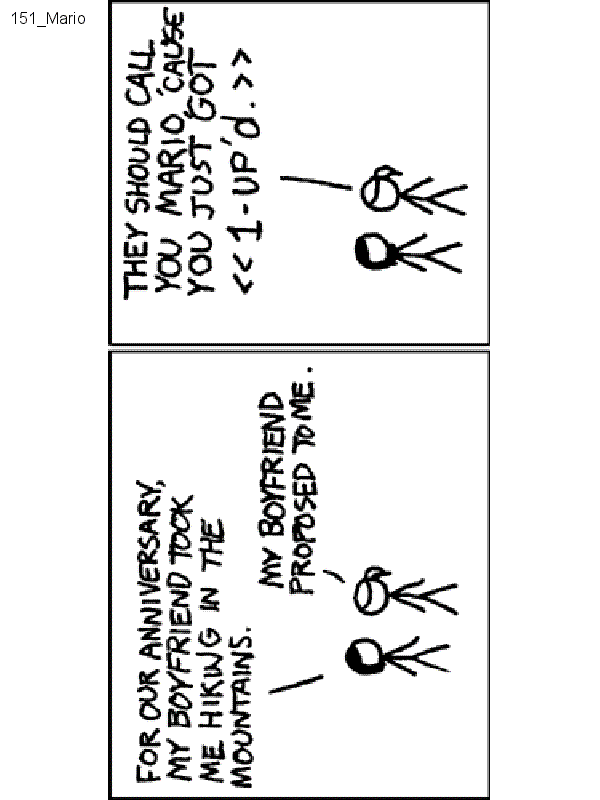 151_Mario
FOR OUR ANNIVERSARY,
MY BOYFRIEND TOOK
ME HIKING IN THE
MOUNTAINS.
MY BOYFRIEND
PROPOSED TO ME.
THEY SHOULD CALL
YOU MARIO, 'CAUSE
YOU JUST GOT
<< 1-UP'd. >>